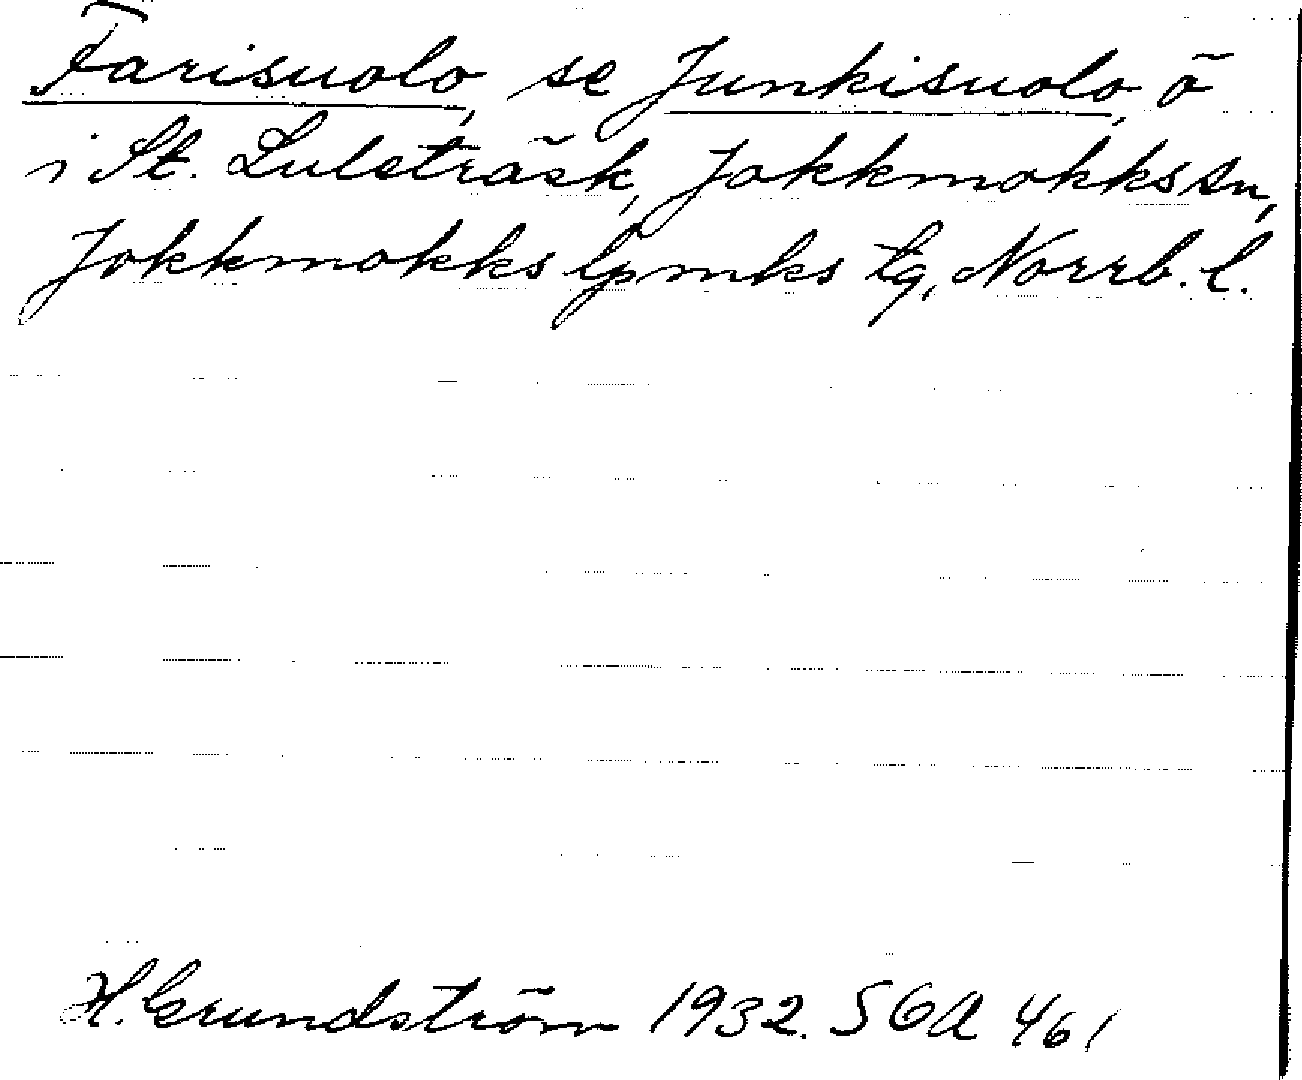 Farisuolo, se Junkisuolo, ö
i St. Luleträsk, Jokkmokks sn,
Jokkmokks lpmks tg, Norrb. l.
H. Grundström 1932. SGA 461